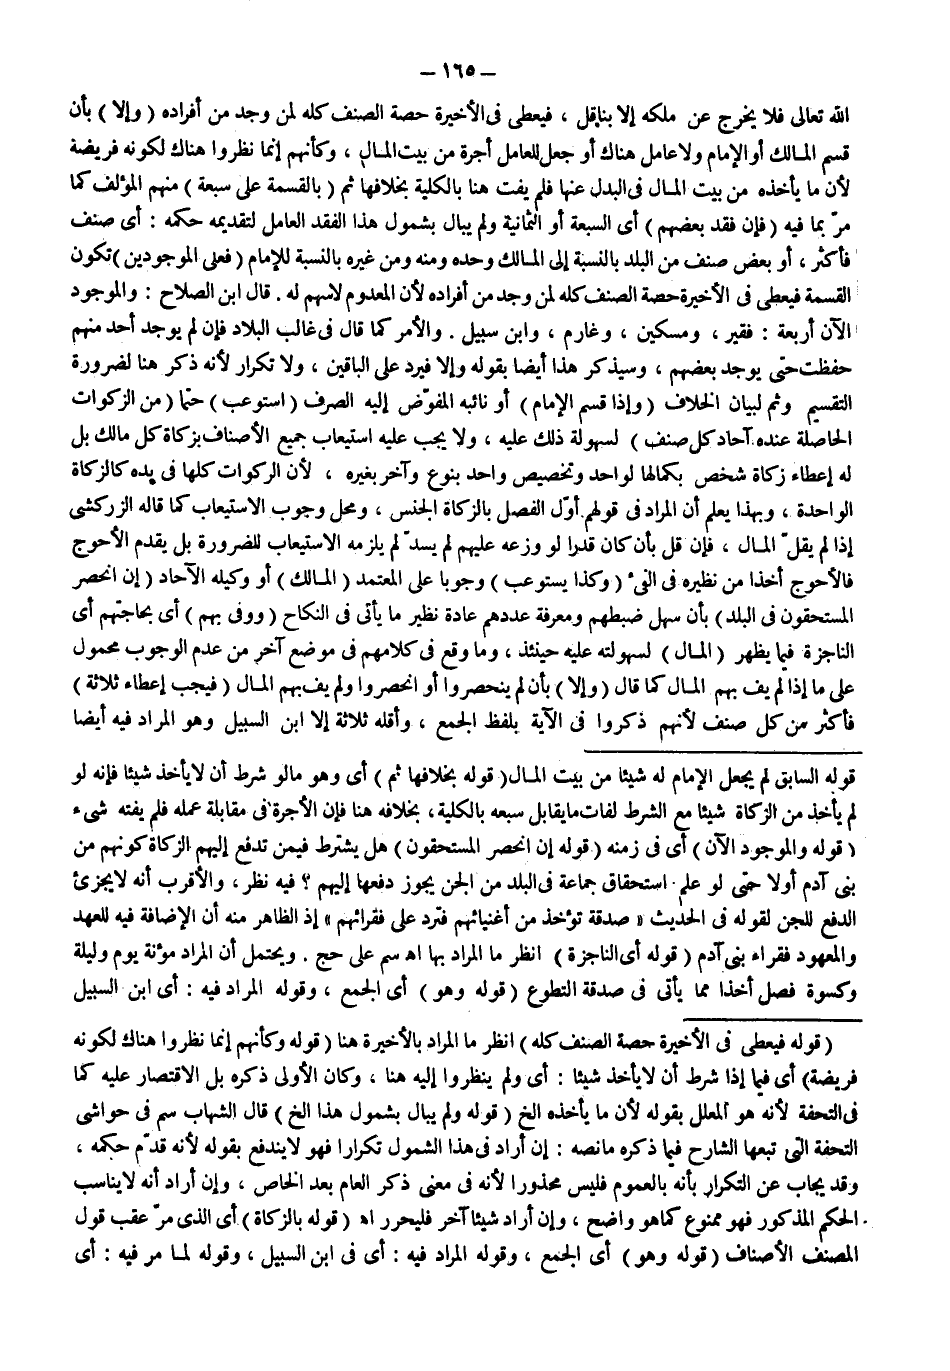 — ١٦٥ —
الله تعالى فلا يخرج عن ملكه إلا بناقل ، فيعطى فى الأخيرة حصة الصنف كله لمن وجد من أفراده ( وإلا ) بأن
قسم المالك أو الإمام ولا عامل هناك أو جعل للعامل أجرة من بيت المال ، وكأنهم إنما نظروا هناك لكونه فريضة
لأن ما يأخذه من بيت المال فى البدل عنها فلم يفت هنا بالكلية بخلافها ثم ( بالقسمة على سبعة ) منهم المؤلف كما
مرّ بما فيه ( فإن فقد بعضهم ) أى السبعة أو الثمانية ولم يبال بشمول هذا الفقد العامل لتقديمه حكمه : أى صنف
فأكثر ، أو بعض صنف من البلد بالنسبة إلى المالك وحده ومنه ومن غيره بالنسبة للإمام ( فعلى الموجودين ) تكون
القسمة فيعطى فى الأخيرة حصة الصنف كله لمن وجد من أفراده لأن المعدوم لاسهم له . قال ابن الصلاح : والموجود
الآن أربعة : فقير ، ومسكين ، وغارم ، وابن سبيل . والأمر كما قال فى غالب البلاد فإن لم يوجد أحد منهم
حفظت حتى يوجد بعضهم ، وسيذكر هذا أيضا بقوله وإلا فيرد على الباقين ، ولا تكرار لأنه ذكر هنا لضرورة
التقسيم وثم لبيان الخلاف ( وإذا قسم الإمام ) أو نائبه المفوّض إليه الصرف ( استوعب ) حتما ( من الزكوات
الحاصلة عنده آحاد كل صنف ) لسهولة ذلك عليه ، ولا يجب عليه استيعاب جميع الأصناف بزكاة كل مالك بل
له إعطاء زكاة شخص بكمالها لواحد وتخصيص واحد بنوع وآخر بغيره ، لأن الزكوات كلها فى يده كالزكاة
الواحدة ، وبهذا يعلم أن المراد فى قولهم أوّل الفصل بالزكاة الجنس ، ومحل وجوب الاستيعاب كما قاله الزركشى
إذا لم يقلّ المال ، فإن قل بأن كان قدرا لو وزعه عليهم لم يسدّ لم يلزمه الاستيعاب للضرورة بل يقدم الأحوج
فالأحوج أخذا من نظيره فى الفىء ( وكذا يستوعب ) وجوبا على المعتمد ( المالك ) أو وكيله الآحاد ( إن انحصر
المستحقون فى البلد ) بأن سهل ضبطهم ومعرفة عددهم عادة نظير ما يأتى فى النكاح ( ووفى بهم ) أى بحاجتهم أى
الناجزة فيما يظهر ( المال ) لسهولته عليه حينئذ ، وما وقع فى كلامهم فى موضع آخر من عدم الوجوب محمول
على ما إذا لم يف بهم المال كما قال ( وإلا ) بأن لم ينحصروا أو انحصروا ولم يف بهم المال ( فيجب إعطاء ثلاثة )
فأكثر من كل صنف لأنهم ذكروا فى الآية بلفظ الجمع ، وأقله ثلاثة إلا ابن السبيل وهو المراد فيه أيضا
قوله السابق لم يجعل الإمام له شيئا من بيت المال ( قوله بخلافها ثم ) أى وهو مالو شرط أن لا يأخذ شيئا فإنه لو
لم يأخذ من الزكاة شيئا مع الشرط لفات ما يقابل سبعه بالكلية ، بخلافه هنا فإن الأجرة فى مقابلة عمله فلم يفته شىء
( قوله والموجود الآن ) أى فى زمنه ( قوله إن انحصر المستحقون ) هل يشترط فيمن تدفع إليهم الزكاة كونهم من
بنى آدم أولا حتى لو علم استحقاق جماعة فى البلد من الجن يجوز دفعها إليهم ؟ فيه نظر ، والأقرب أنه لا يجزئ
الدفع للجن لقوله فى الحديث « صدقة تؤخذ من أغنيائهم فتردّ على فقرائهم » إذ الظاهر منه أن الإضافة فيه للعهد
والمعهود فقراء بنى آدم ( قوله أى الناجزة ) انظر ما المراد بها اهـ سم على حج . ويحتمل أن المراد مؤنة يوم وليلة
وكسوة فصل أخذا مما يأتى فى صدقة التطوع ( قوله وهو ) أى الجمع ، وقوله المراد فيه : أى ابن السبيل
( قوله فيعطى فى الأخيرة حصة الصنف كله ) انظر ما المراد بالأخيرة هنا ( قوله وكأنهم إنما نظروا هناك لكونه
فريضة ) أى فيما إذا شرط أن لا يأخذ شيئا : أى ولم ينظروا إليه هنا ، وكان الأولى ذكره بل الاقتصار عليه كما
فى التحفة لأنه هو المعلل بقوله لأن ما يأخذه الخ ( قوله ولم يبال بشمول هذا الخ ) قال الشهاب سم فى حواشى
التحفة التى تبعها الشارح فيما ذكره مانصه : إن أراد فى هذا الشمول تكرارا فهو لا يندفع بقوله لأنه قدّم حكمه ،
وقد يجاب عن التكرار بأنه بالعموم فليس محذورا لأنه فى معنى ذكر العام بعد الخاص ، وإن أراد أنه لا يناسب
الحكم المذكور فهو ممنوع كما هو واضح ، وإن أراد شيئا آخر فليحرر اهـ ( قوله بالزكاة ) أى الذى مرّ عقب قول
المصنف الأصناف ( قوله وهو ) أى الجمع ، وقوله المراد فيه : أى فى ابن السبيل ، وقوله لما مر فيه : أى